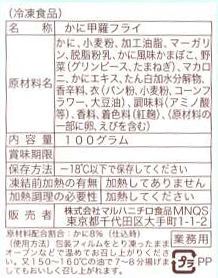 (冷凍食品)
名称 かに甲羅フライ
原材料名 かに、小麦粉、加工油脂、マーガリ
ン、脱脂粉乳、かに風味かまぼこ、野
菜(グリンピース、たまねぎ)、マカロ
ニ、かにエキス、たん白加水分解物、
香辛料、衣(パン粉、小麦粉、コーンフ
ラワー、大豆油)、調味料(アミノ酸
等)、香料、着色料(紅麹)、(原材料の
一部に卵、えびを含む)
内容量 100グラム
賞味期限
保存方法 −18℃以下で保存してください
凍結前加熱の有無 加熱してありません
加熱調理の必要性 加熱してください
販売者 株式会社マルハニチロ食品MNQS
東京都千代田区大手町1-1-2
原料配合割合:かに8% (仕込時)
(使用方法) 包装フィルムをとり凍ったまま
オーブンなどで温めてお召し上がりくださ
い。又150〜160℃の油で7〜8分揚げま
してもおいしく召し上がれます。
業務用
プラ
PP